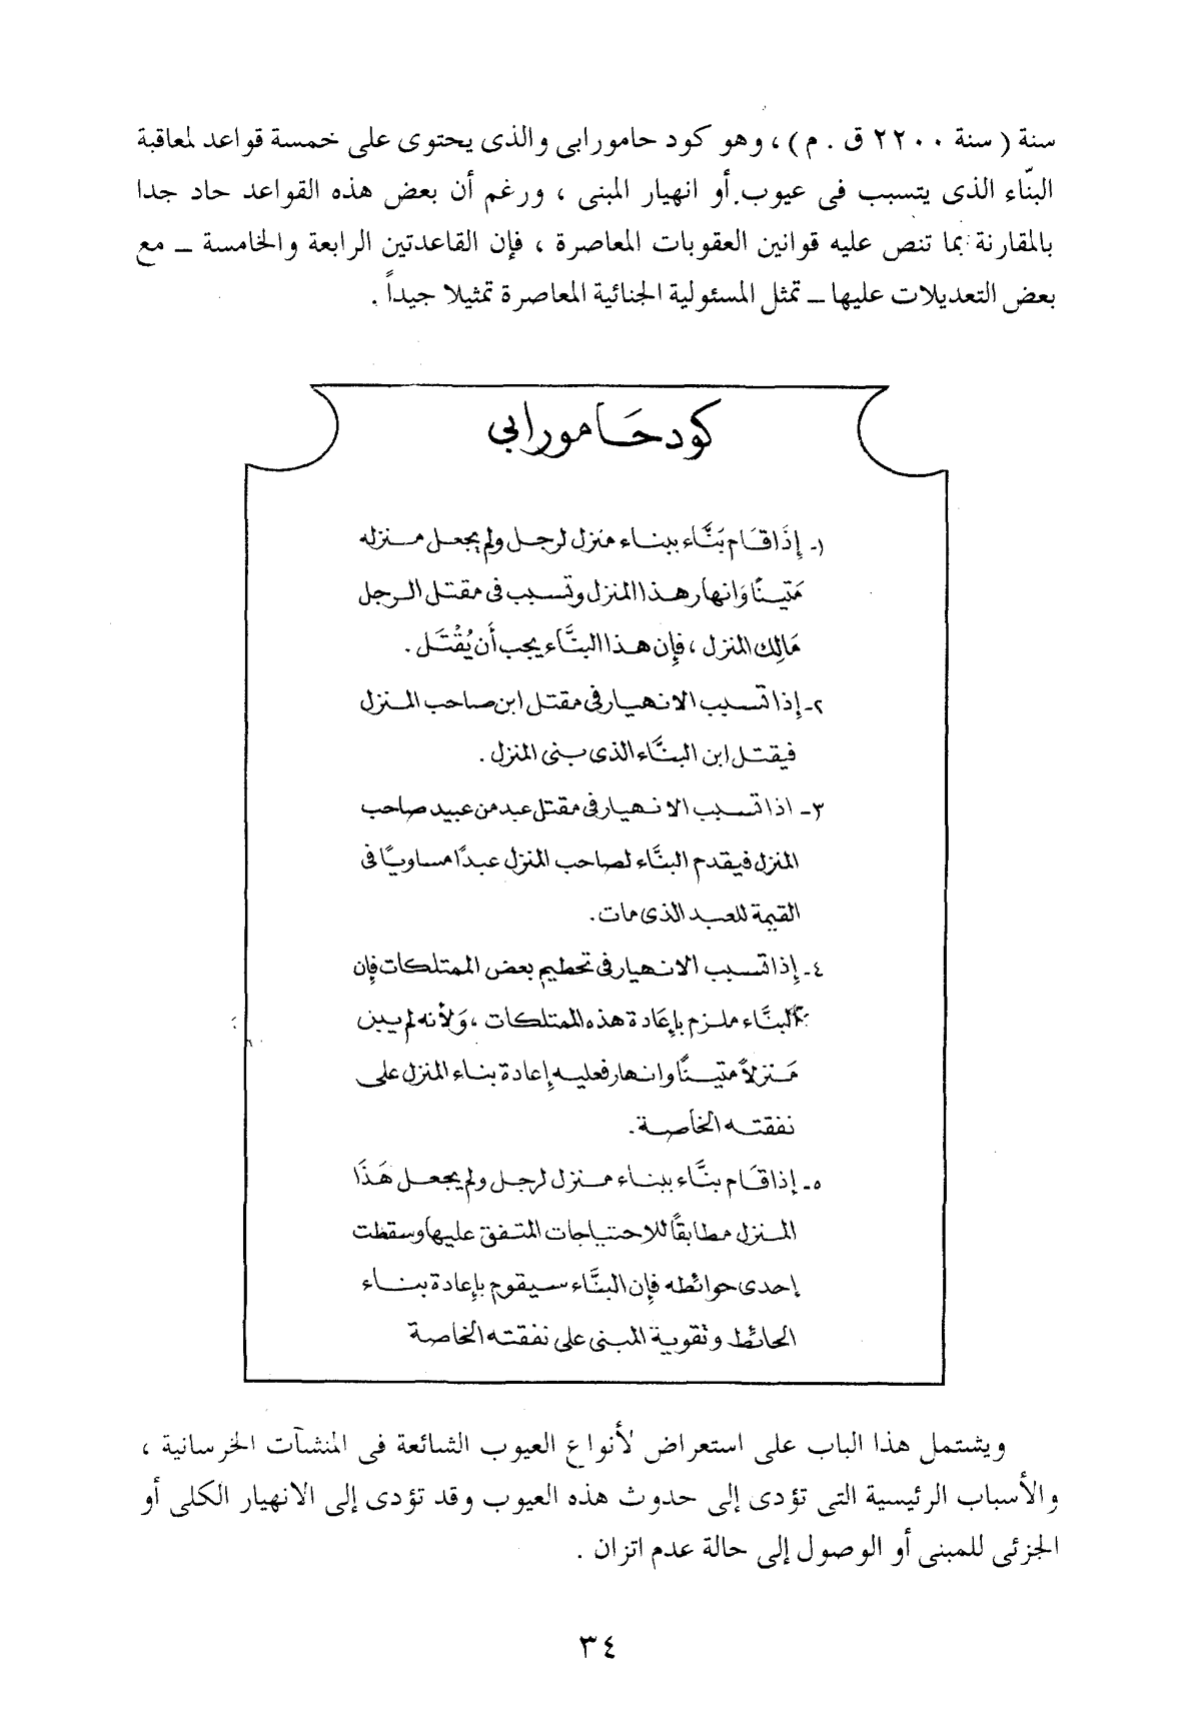 سنة ( سنة ٢٢٠٠ ق . م ) ، وهو كود حامورابى والذى يحتوى على خمسة قواعد لمعاقبة
البنّاء الذى يتسبب فى عيوب أو انهيار المبنى ، ورغم أن بعض هذه القواعد حاد جدا
بالمقارنة بما تنص عليه قوانين العقوبات المعاصرة ، فإن القاعدتين الرابعة والخامسة ــ مع
بعض التعديلات عليها ــ تمثل المسئولية الجنائية المعاصرة تمثيلا جيداً .
كود حَامورابي
١- إِذَا قَام بَنَّاء ببناء منزل لرجل ولم يجعل منزله
مَتينًا وَانهار هذا المنزل وتسبب فى مقتل الرجل
مَالِك المنزل ، فإِن هذا البنَّاء يجب أَن يُقْتَل .
٢- إِذا تسبب الانهيار فى مقتل ابن صاحب المنزل
فيقتل ابن البنَّاء الذى بنى المنزل .
٣- اذا تسبب الانهيار فى مقتل عبد من عبيد صاحب
المنزل فيقدم البنَّاء لصاحب المنزل عبدًا مساويًا فى
القيمة للعبد الذى مات.
٤- إِذا تسبب الانهيار فى تحطيم بعض الممتلكات فإِن
البنَّاء ملزم بإِعادة هذه الممتلكات ، وَلأنه لم يبن
مَنزلاً متينًا وانهار فعليه إِعادة بناء المنزل على
نفقته الخاصة.
٥- إِذا قَام بنَّاء ببناء منزل لرجل ولم يجعل هَذَا
المنزل مطابقاً للاحتياجات المتفق عليها وسقطت
إحدى حوائطه فإِن البنَّاء سيقوم بإِعادة بناء
الحائط وتقوية المبنى على نفقته الخاصة
ويشتمل هذا الباب على استعراض لأنواع العيوب الشائعة فى المنشآت الخرسانية ،
والأسباب الرئيسية التى تؤدى إلى حدوث هذه العيوب وقد تؤدى إلى الانهيار الكلى أو
الجزئى للمبنى أو الوصول إلى حالة عدم اتزان .
٣٤